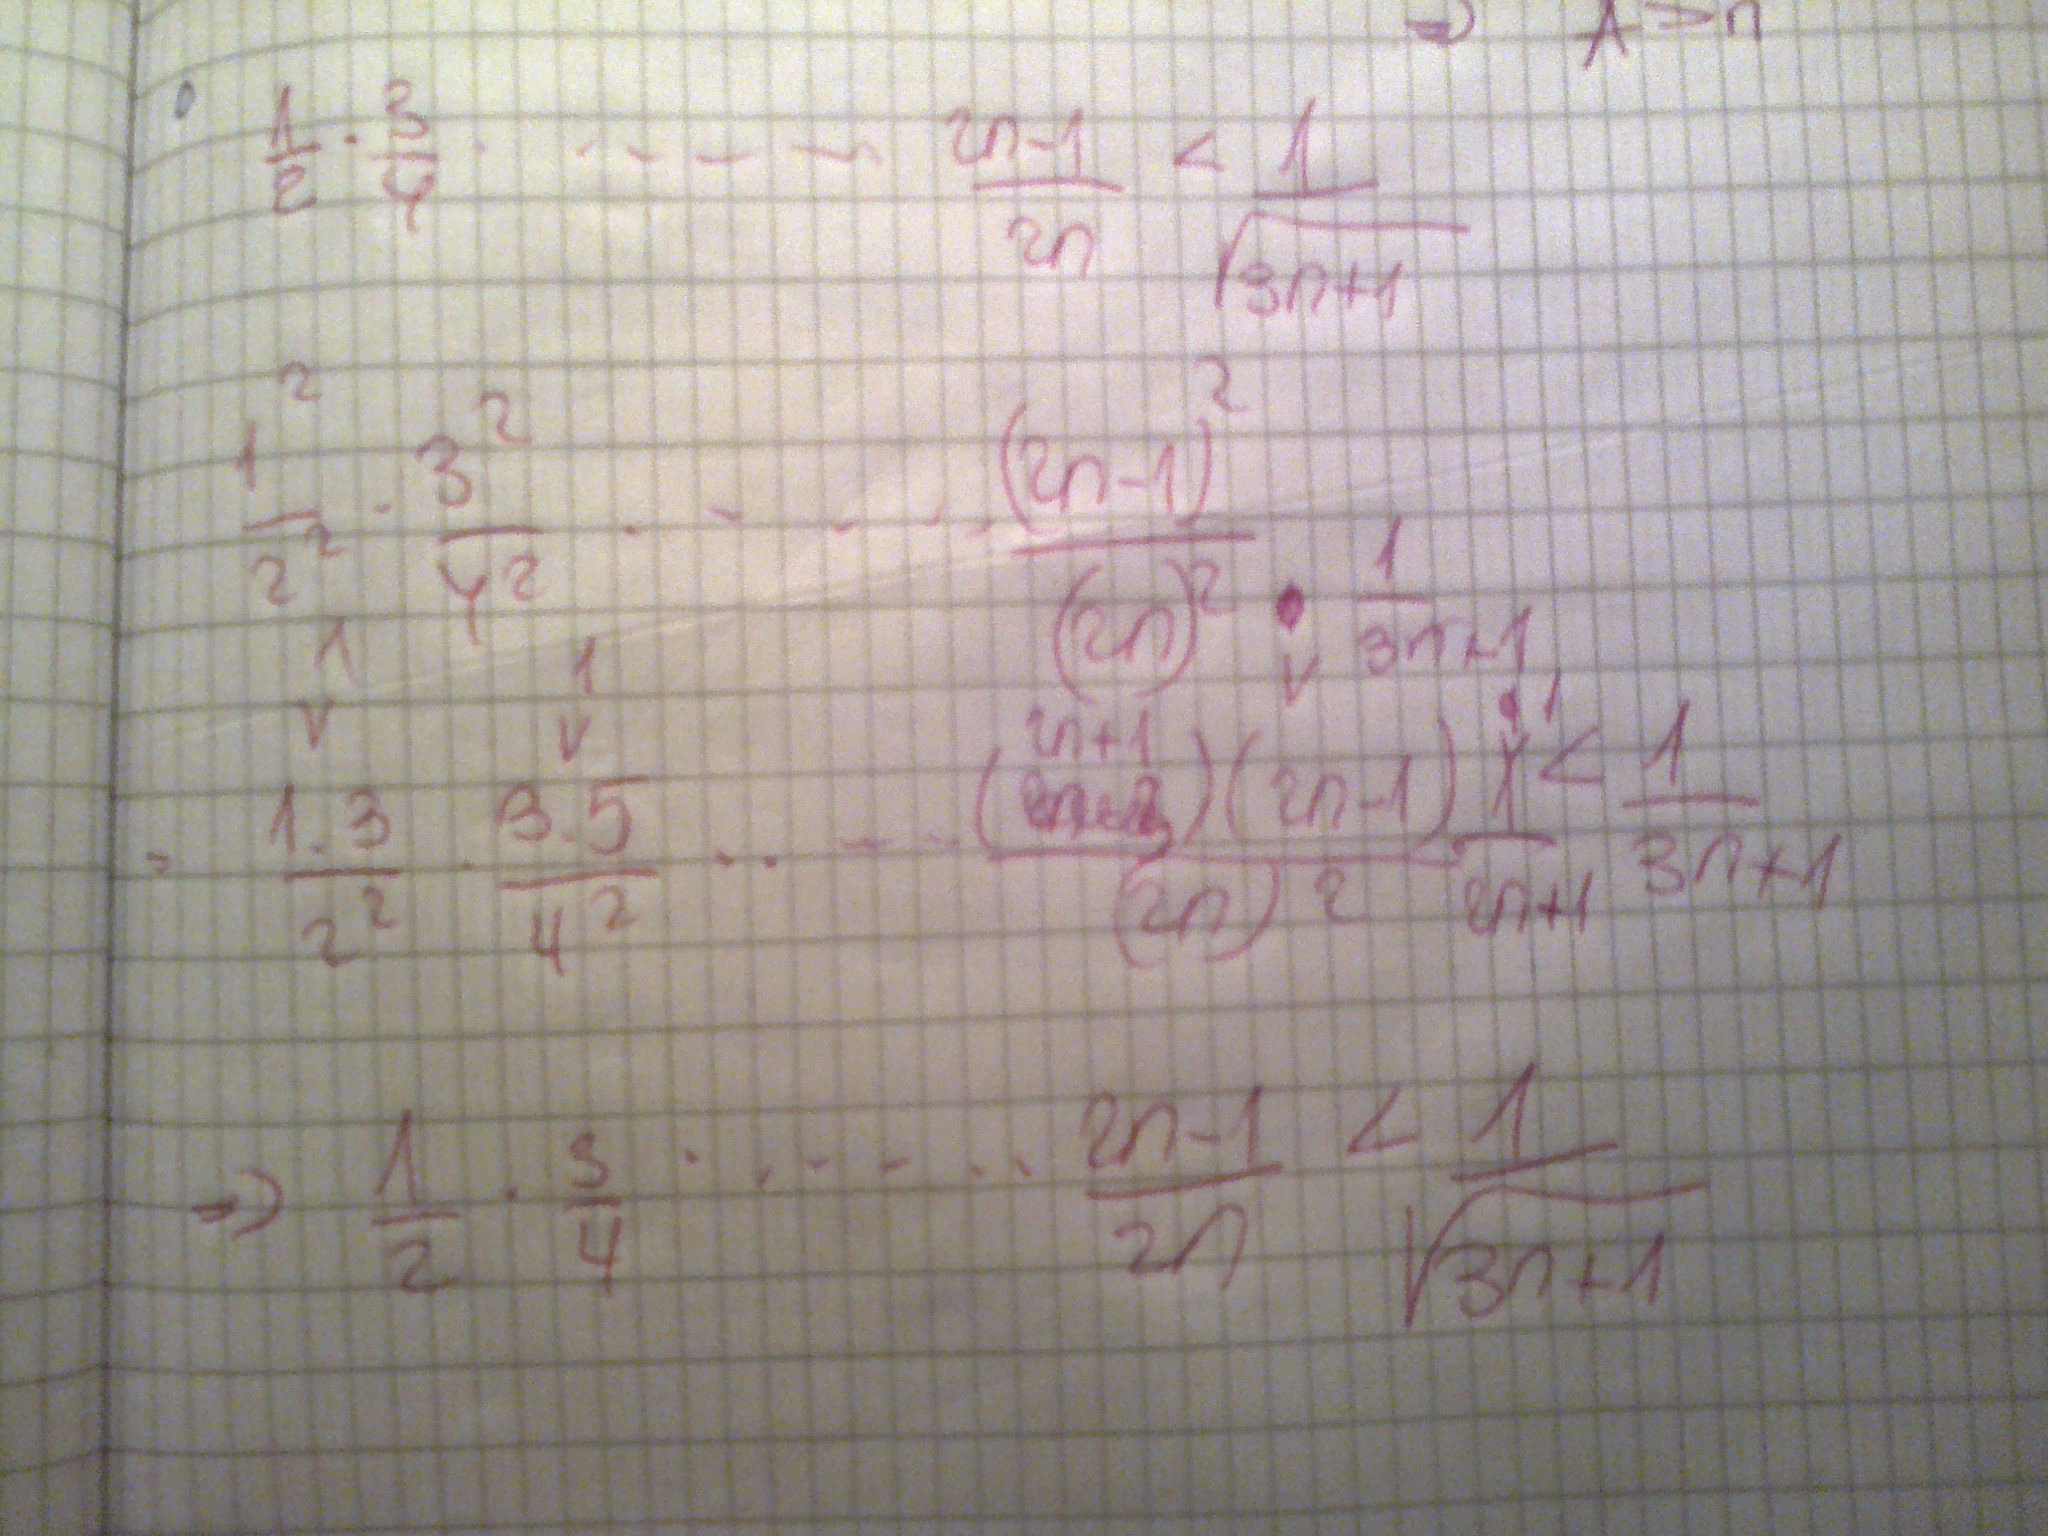 ⇒ A > n
1/2 · 3/4 · - - - - - (2n-1)/(2n) < 1/√(3n+1)
1²/2² · 3²/4² · - - - - (2n-1)²/(2n)² · 1/(3n+1)
∧ 1 ∨
∨ ∨ 1
= (1.3)/2² · (3.5)/4² · . - - - (2n+1)(2n-1)/(2n)² 1/(2n+1) < 1/(3n+1)
⇒ 1/2 · 3/4 · . - - - . . (2n-1)/(2n) < 1/√(3n+1)